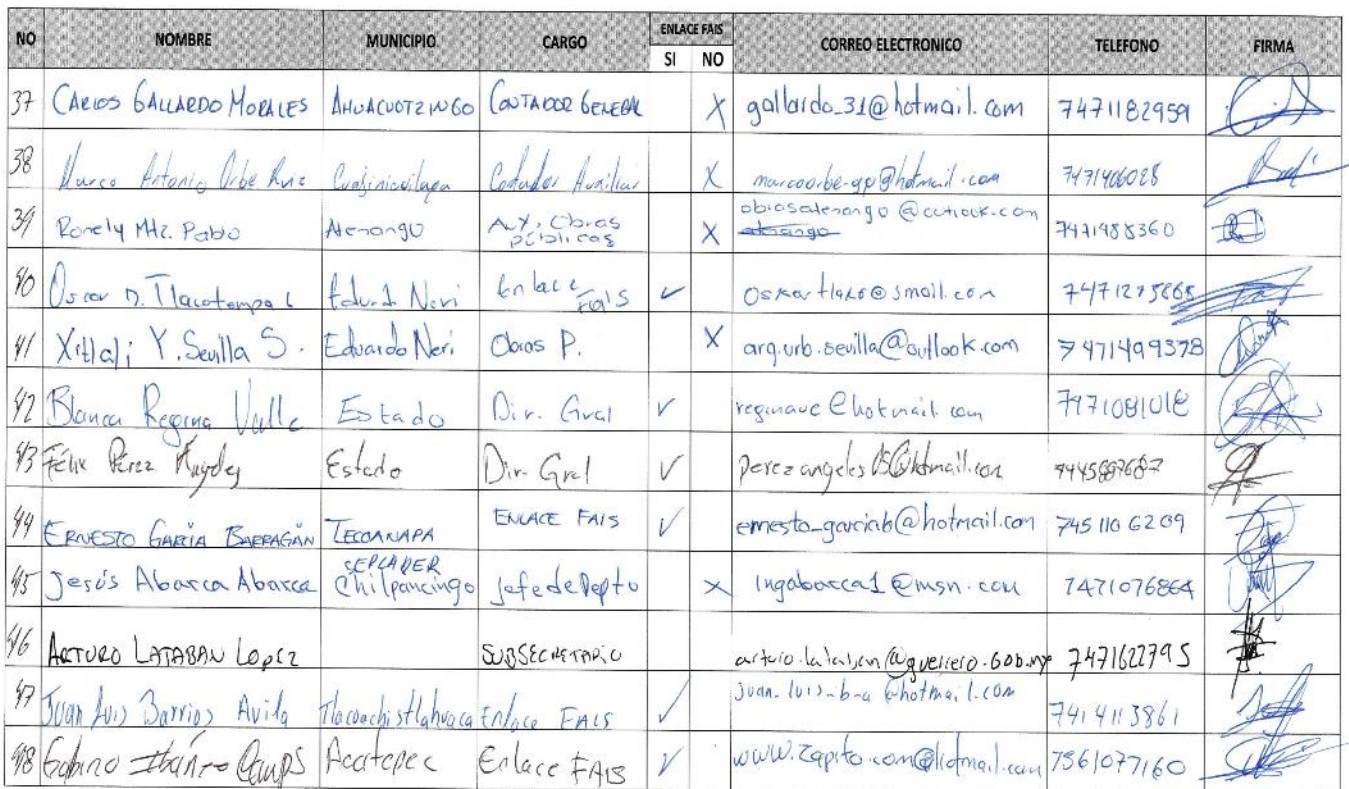 NO NOMBRE MUNICIPIO CARGO ENLACE FAIS SI NO CORREO ELECTRONICO TELEFONO FIRMA
37 CARLOS GALLARDO MORALES AHUACUOTZINGO CONTADOR GENERAL X gallardo_31@hotmail.com 7471182959
38 Marco Antonio Orbe Ruiz Cuajinicuilapa Contador Auxiliar X marcoorbe-gp@hotmail.com 7471406028
39 Ronely Mtz. Pablo Atenango Aux. Obras públicas X obrasatenango@outlook.com 7471988360
40 Oscar D. Eduard Neri Enlace FAIS ✓
41 Xitlali Y. Sevilla S. Eduardo Neri Obras P. X arq.urb.sevilla@outlook.com 7471499378
42 Blanca Regina Valle Estado Dir. Gral ✓ reginave@hotmail.com 7471081018
43 Félix Pérez Estado Dir. Gral ✓ perezangeles05@hotmail.com
44 ERNESTO GARCÍA BARRAGÁN TECOANAPA ENLACE FAIS ✓ ernesto_garciab@hotmail.com 745 110 6209
45 Jesús Abarca Abarca SEPLADER Chilpancingo Jefe de Depto X Ingabarca1@msn.com 7471076864
46 ARTURO LATABAN LOPEZ SUBSECRETARIO arturo.lataban@guerrero.gob.mx 7471622795
47 Juan Luis Barrios Avila Tlacoachistlahuaca Enlace FAIS ✓ juan-luis-b-a@hotmail.com 7414113861
48 Gabino Ibáñez Acatepec Enlace FAIS ✓ www.zapito.com@hotmail.com 7561077160